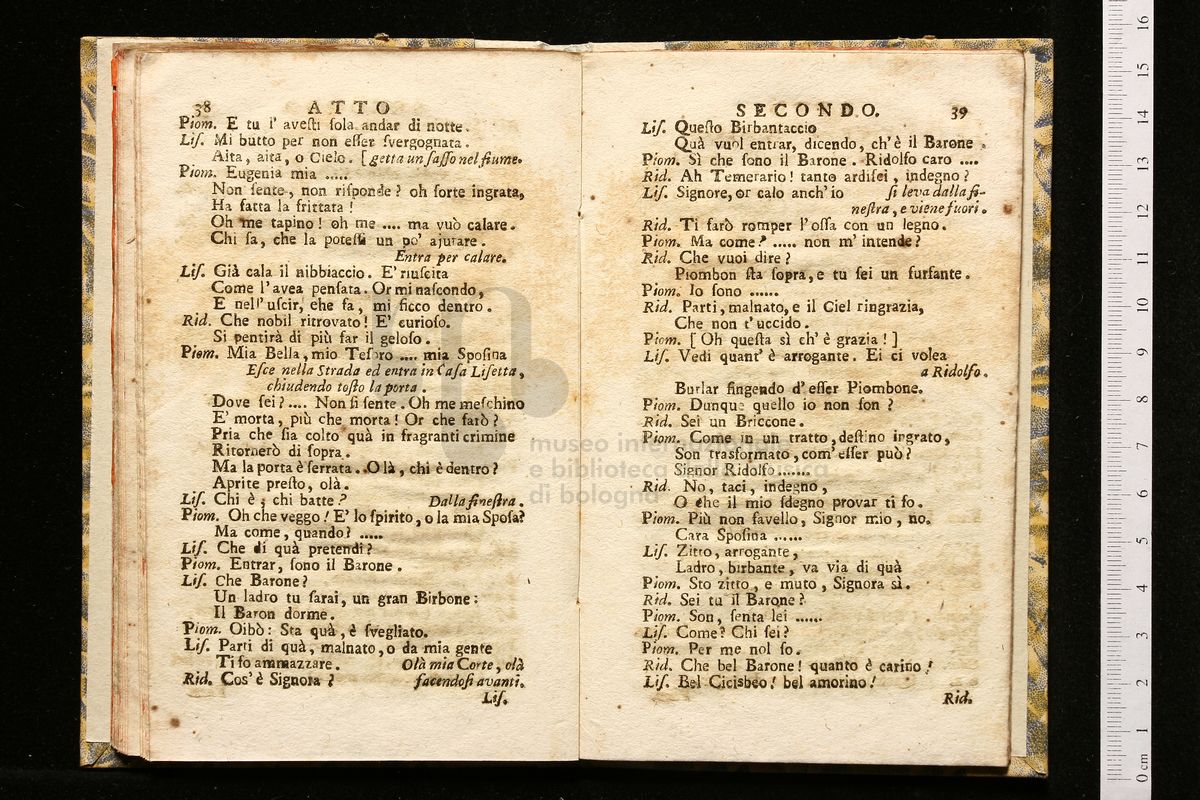 38 ATTO
Piom. E tu l' aveſti ſola andar di notte.
Liſ. Mi butto per non eſſer ſvergognata.
Aita, aita, o Cielo. [ getta un ſaſſo nel fiume.
Piom. Eugenia mia .....
Non ſente, non riſponde? oh ſorte ingrata,
Ha fatta la frittata !
Oh me tapino! oh me .... ma vuò calare.
Chi ſa, che la poteſſi un po' ajutare.
Entra per calare.
Liſ. Già cala il nibbiaccio. E' riuſcita
Come l' avea penſata. Or mi naſcondo,
E nell' uſcir, che fa, mi ficco dentro.
Rid. Che nobil ritrovato! E' curioſo.
Si pentirà di più far il geloſo.
Piom. Mia Bella, mio Teſoro .... mia Spoſina
Eſce nella Strada ed entra in Caſa Liſetta,
chiudendo toſto la porta.
Dove ſei?.... Non ſi ſente. Oh me meſchino
E' morta, più che morta! Or che farò?
Pria che ſia colto quà in fragranti crimine
Ritornerò di ſopra.
Ma la porta è ſerrata. Olà, chi è dentro?
Aprite preſto, olà.
Liſ. Chi è, chi batte? Dalla fineſtra.
Piom. Oh che veggo! E' lo ſpirito, o la mia Spoſa?
Ma come, quando? .....
Liſ. Che di quà pretendi?
Piom. Entrar, ſono il Barone.
Liſ. Che Barone?
Un ladro tu ſarai, un gran Birbone:
Il Baron dorme.
Piom. Oibò: Sta quà, è ſvegliato.
Liſ. Parti di quà, malnato, o da mia gente
Ti fo ammazzare. Olà mia Corte, olà
Rid. Cos' è Signora ? facendoſi avanti.
Liſ.
SECONDO. 39
Liſ. Queſto Birbantaccio
Quà vuol entrar, dicendo, ch' è il Barone.
Piom. Sì che ſono il Barone. Ridolfo caro ....
Rid. Ah Temerario! tanto ardiſci, indegno?
Liſ. Signore, or calo anch' io ſi leva dalla fi-
neſtra, e viene fuori.
Rid. Ti farò romper l' oſſa con un legno.
Piom. Ma come? ..... non m' intende?
Rid. Che vuoi dire?
Piombon ſta ſopra, e tu ſei un furfante.
Piom. Io ſono ......
Rid. Parti, malnato, e il Ciel ringrazia,
Che non t' uccido.
Piom. [ Oh queſta sì ch' è grazia! ]
Liſ. Vedi quant' è arrogante. Ei ci volea
a Ridolfo.
Burlar fingendo d' eſſer Piombone.
Piom. Dunque quello io non ſon ?
Rid. Sei un Briccone.
Piom. Come in un tratto, deſtino ingrato,
Son trasformato, com' eſſer può?
Signor Ridolfo.......
Rid. No, taci, indegno,
O che il mio ſdegno provar ti fo.
Piom. Più non favello, Signor mio, no.
Cara Spoſina ......
Liſ. Zitto, arrogante,
Ladro, birbante, va via di quà
Piom. Sto zitto, e muto, Signora sì.
Rid. Sei tu il Barone?
Piom. Son, ſenta lei ......
Liſ. Come? Chi ſei?
Piom. Per me nol ſo.
Rid. Che bel Barone! quanto è carino !
Liſ. Bel Cicisbeo! bel amorino!
Rid.
museo internazionale
e biblioteca della musica
di bologna
0 cm 1 2 3 4 5 6 7 8 9 10 11 12 13 14 15 16